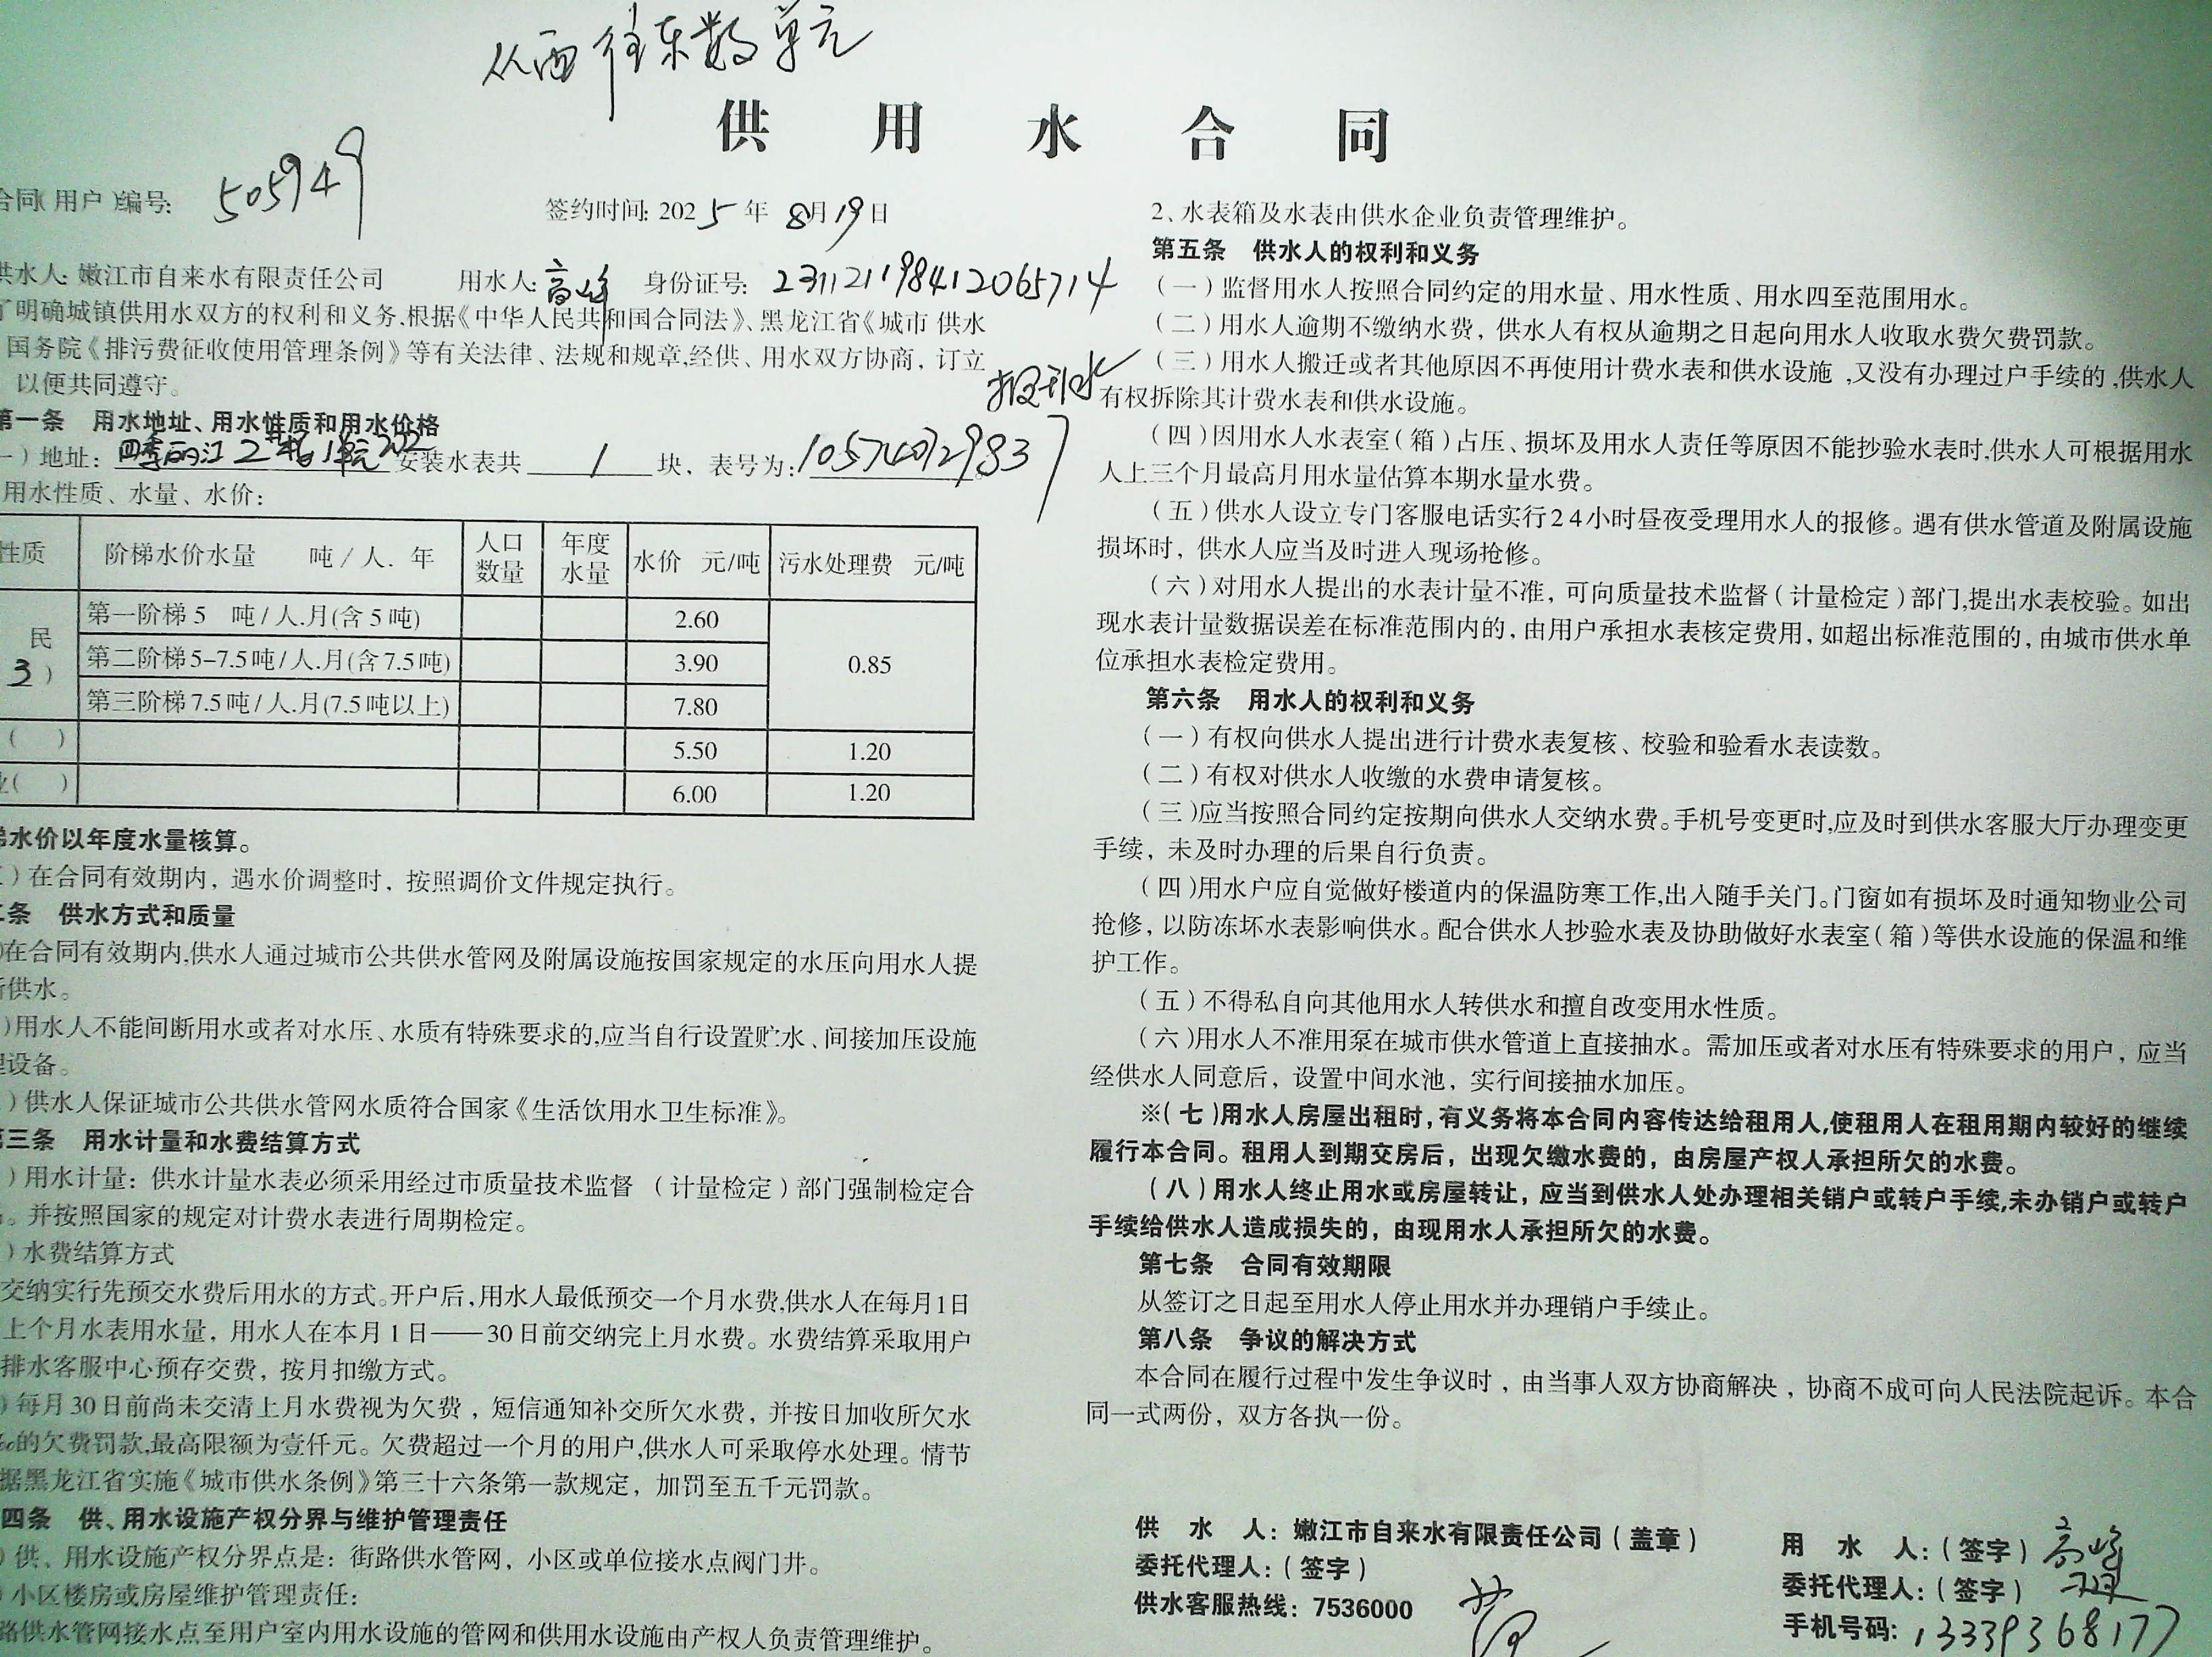 从西往东数单元
供用水合同
合同(用户)编号: 505949
签约时间: 2025年8月19日
供水人: 嫩江市自来水有限责任公司 用水人: 高峰 身份证号: 231121198412065714
了明确城镇供用水双方的权利和义务,根据《中华人民共和国合同法》、黑龙江省《城市 供水
国务院《排污费征收使用管理条例》等有关法律、法规和规章,经供、用水双方协商，订立
以便共同遵守。
第一条 用水地址、用水性质和用水价格
一）地址: 四季丽江2#楼1单元202 安装水表共 1 块，表号为:
用水性质、水量、水价:
性质 阶梯水价水量 吨/人.年 人口数量 年度水量 水价 元/吨 污水处理费 元/吨
民 3） 第一阶梯5 吨/人.月(含5吨) 2.60 0.85
第二阶梯5-7.5吨/人.月(含7.5吨) 3.90
第三阶梯7.5吨/人.月(7.5吨以上) 7.80
( ) 5.50 1.20
业( ) 6.00 1.20
梯水价以年度水量核算。
）在合同有效期内，遇水价调整时，按照调价文件规定执行。
二条 供水方式和质量
)在合同有效期内,供水人通过城市公共供水管网及附属设施按国家规定的水压向用水人提
供水。
)用水人不能间断用水或者对水压、水质有特殊要求的,应当自行设置贮水、间接加压设施
理设备。
）供水人保证城市公共供水管网水质符合国家《生活饮用水卫生标准》。
第三条 用水计量和水费结算方式
）用水计量：供水计量水表必须采用经过市质量技术监督 （计量检定）部门强制检定合
。并按照国家的规定对计费水表进行周期检定。
）水费结算方式
交纳实行先预交水费后用水的方式。开户后,用水人最低预交一个月水费,供水人在每月1日
上个月水表用水量，用水人在本月1日——30日前交纳完上月水费。水费结算采取用户
排水客服中心预存交费，按月扣缴方式。
）每月30日前尚未交清上月水费视为欠费，短信通知补交所欠水费，并按日加收所欠水
‰的欠费罚款,最高限额为壹仟元。欠费超过一个月的用户,供水人可采取停水处理。情节
据黑龙江省实施《城市供水条例》第三十六条第一款规定，加罚至五千元罚款。
四条 供、用水设施产权分界与维护管理责任
）供、用水设施产权分界点是：街路供水管网，小区或单位接水点阀门井。
）小区楼房或房屋维护管理责任:
路供水管网接水点至用户室内用水设施的管网和供用水设施由产权人负责管理维护。
2、水表箱及水表由供水企业负责管理维护。
第五条 供水人的权利和义务
（一）监督用水人按照合同约定的用水量、用水性质、用水四至范围用水。
（二）用水人逾期不缴纳水费，供水人有权从逾期之日起向用水人收取水费欠费罚款。
（三）用水人搬迁或者其他原因不再使用计费水表和供水设施,又没有办理过户手续的,供水人
有权拆除其计费水表和供水设施。
（四）因用水人水表室（箱）占压、损坏及用水人责任等原因不能抄验水表时,供水人可根据用水
人上三个月最高月用水量估算本期水量水费。
（五）供水人设立专门客服电话实行24小时昼夜受理用水人的报修。遇有供水管道及附属设施
损坏时，供水人应当及时进入现场抢修。
（六）对用水人提出的水表计量不准，可向质量技术监督（计量检定）部门,提出水表校验。如出
现水表计量数据误差在标准范围内的，由用户承担水表核定费用，如超出标准范围的，由城市供水单
位承担水表检定费用。
第六条 用水人的权利和义务
（一）有权向供水人提出进行计费水表复核、校验和验看水表读数。
（二）有权对供水人收缴的水费申请复核。
（三）应当按照合同约定按期向供水人交纳水费。手机号变更时,应及时到供水客服大厅办理变更
手续，未及时办理的后果自行负责。
（四）用水户应自觉做好楼道内的保温防寒工作,出入随手关门。门窗如有损坏及时通知物业公司
抢修，以防冻坏水表影响供水。配合供水人抄验水表及协助做好水表室（箱）等供水设施的保温和维
护工作。
（五）不得私自向其他用水人转供水和擅自改变用水性质。
（六）用水人不准用泵在城市供水管道上直接抽水。需加压或者对水压有特殊要求的用户，应当
经供水人同意后，设置中间水池，实行间接抽水加压。
※（七）用水人房屋出租时，有义务将本合同内容传达给租用人,使租用人在租用期内较好的继续
履行本合同。租用人到期交房后，出现欠缴水费的，由房屋产权人承担所欠的水费。
（八）用水人终止用水或房屋转让，应当到供水人处办理相关销户或转户手续,未办销户或转户
手续给供水人造成损失的，由现用水人承担所欠的水费。
第七条 合同有效期限
从签订之日起至用水人停止用水并办理销户手续止。
第八条 争议的解决方式
本合同在履行过程中发生争议时，由当事人双方协商解决，协商不成可向人民法院起诉。本合
同一式两份，双方各执一份。
供 水 人：嫩江市自来水有限责任公司（盖章）
委托代理人：（签字）
供水客服热线：7536000
用 水 人：（签字）高峰
委托代理人：（签字）
手机号码：13339368177